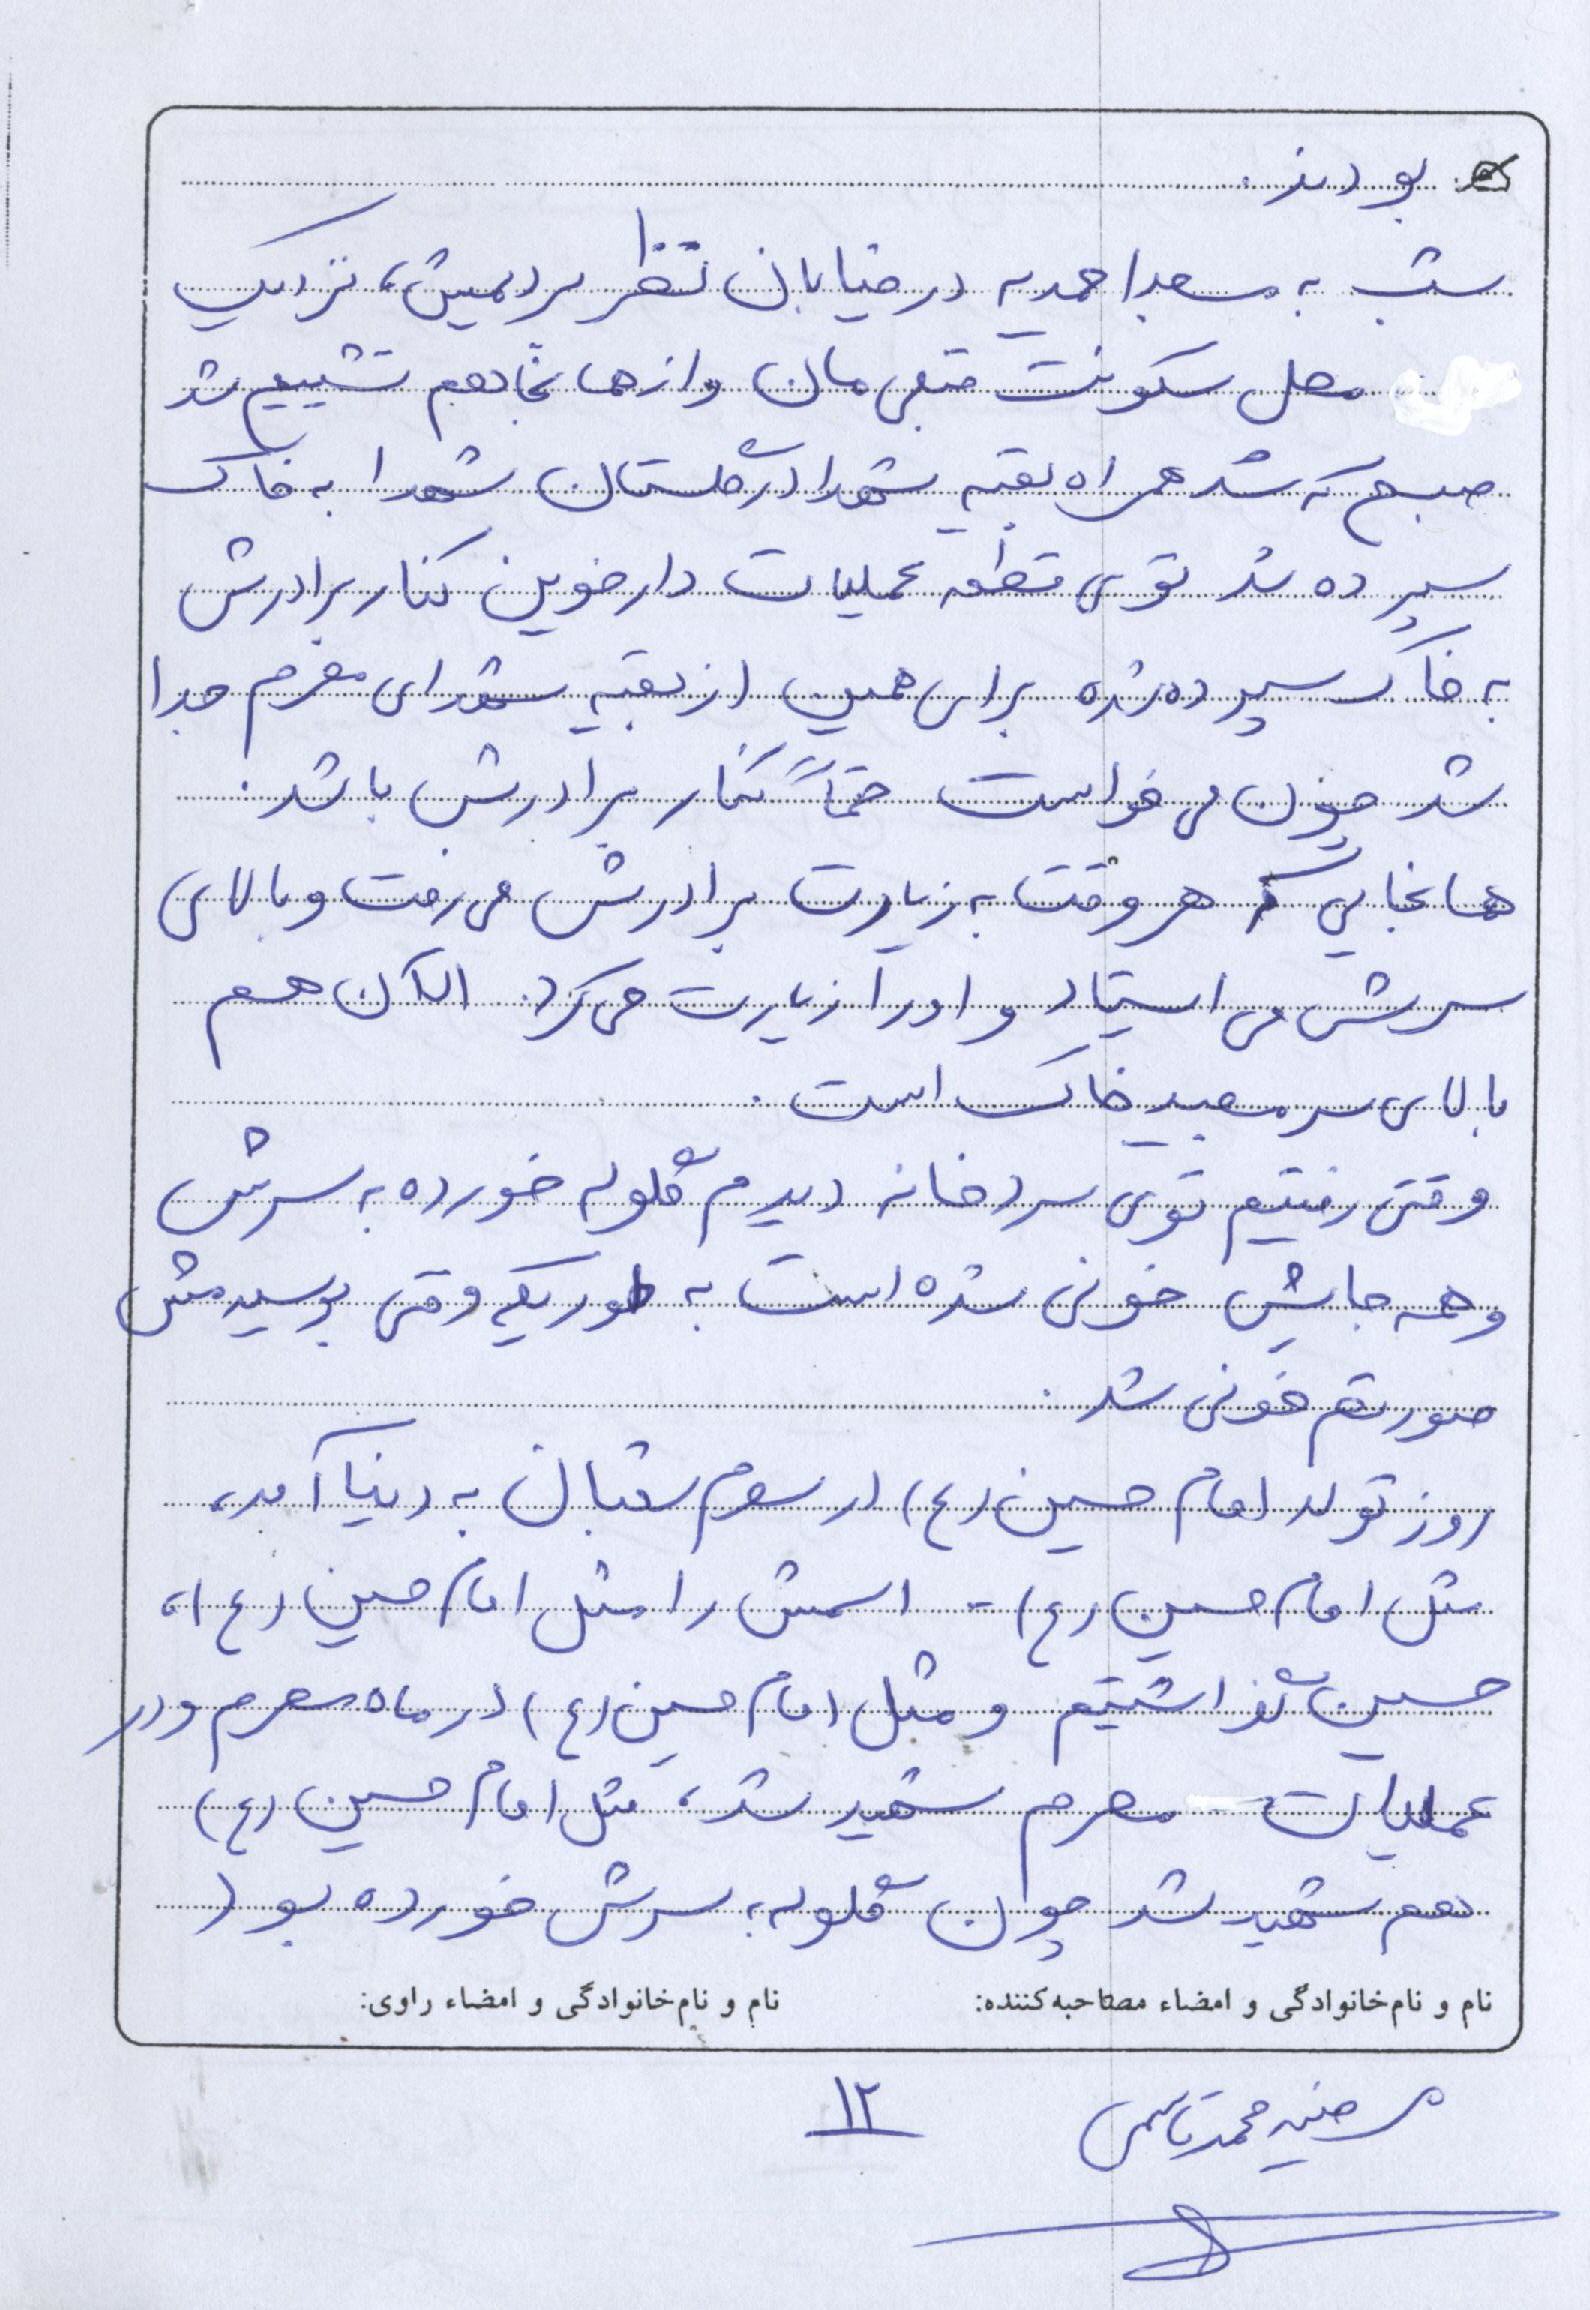 بودند.
شب به مسجد احمدیه در خیابان نظر بردیمش، نزدیک
محل سکونت قبلی مان و از همانجا هم تشییع شد
صبح که شد همراه بقیه شهدا در گلستان شهدا به خاک
سپرده شد توی قطعه عملیات دارخوین کنار برادرش
به خاک سپرده شده برای همین از بقیه شهدای محرم جدا
شد چون می خواست حتماً کنار برادرش باشد.
همانجایی که هر وقت به زیارت برادرش می رفت و بالای
سرش می ایستاد و او را زیارت می کرد. الآن هم
بالای سر سعید خاک است.
وقتی رفتیم توی سردخانه دیدم گلوله خورده به سرش
و همه جایش خونی شده است به طوریکه وقتی بوسیدمش
صورتم خونی شد.
روز تولد امام حسین (ع) در سوم شعبان به دنیا آمد،
مثل امام حسین (ع) - اسمش را مثل امام حسین (ع)،
حسین گذاشتیم و مثل امام حسین (ع) در ماه محرم و در
عملیات محرم شهید شد، مثل امام حسین (ع)
هم شهید شد چون گلوله به سرش خورده بود
نام و نام‌خانوادگی و امضاء مصاحبه‌کننده: نام و نام‌خانوادگی و امضاء راوی:
مرضیه محمدقاسمی
۱۲